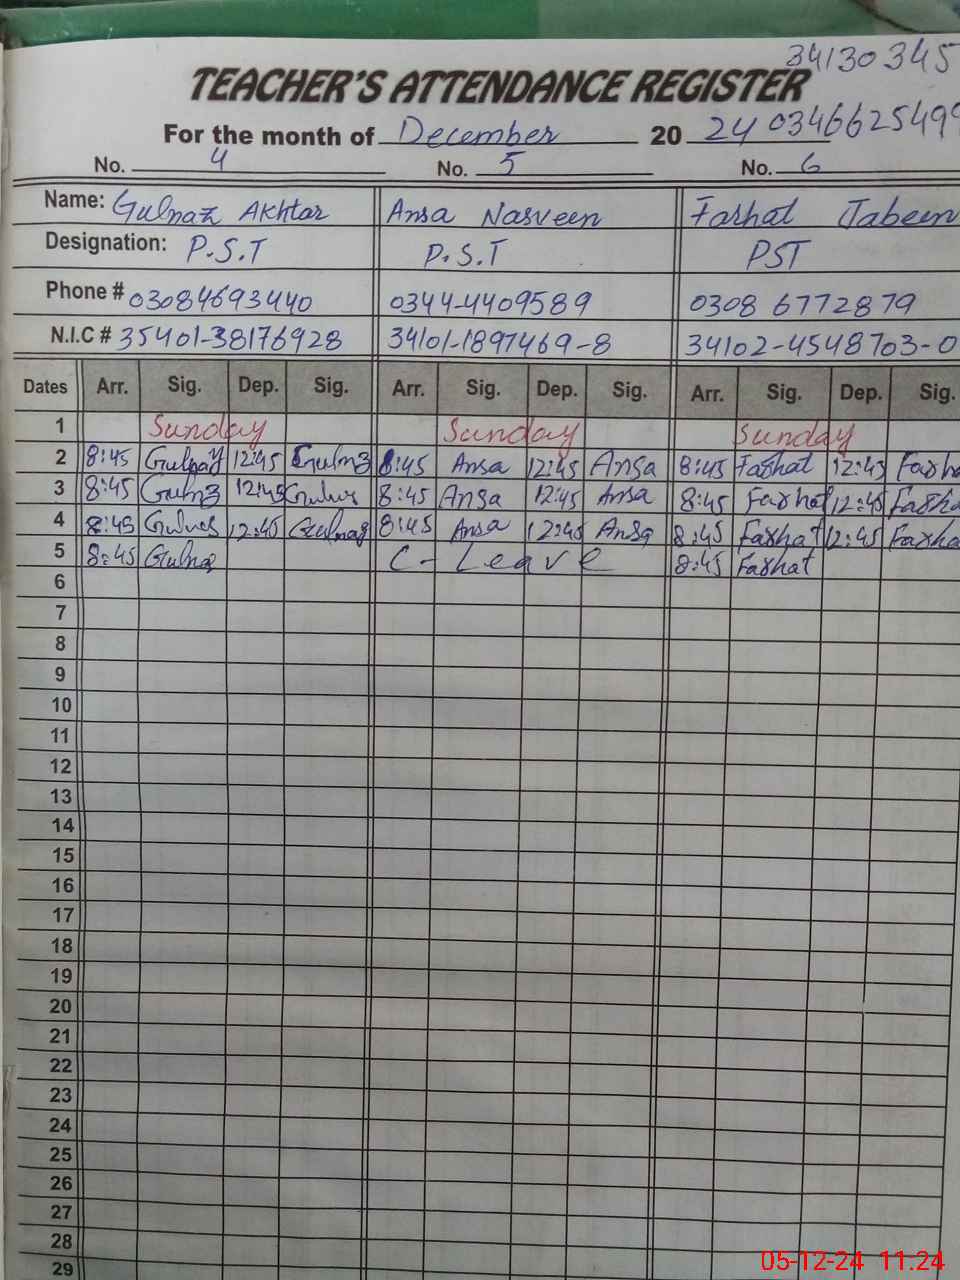 34130345
TEACHER'S ATTENDANCE REGISTER
For the month of December 20 24 03466625499
No. 4 No. 5 No. 6
Name: Gulnaz Akhtar Ansa Nasveen Farhat Jabeen
Designation: P.S.T P.S.T PST
Phone # 03084693440 0344-4409589 0308 6772879
N.I.C # 35401-38176928 34101-1897469-8 34102-4548703-0
Dates Arr. Sig. Dep. Sig. Arr. Sig. Dep. Sig. Arr. Sig. Dep. Sig.
1 Sunday Sunday Sunday
2 8:45 12:45 8:45 Ansa 12:45 Ansa 8:45 Farhat 12:45 Farha
3 8:45 12:45 8:45 Ansa 12:45 Ansa 8:45 Farhat 12:45 Farha
4 8:45 12:45 8:45 Ansa 12:45 Ansa 8:45 Farhat 12:45 Farha
5 8:45 C - Leave 8:45 Farhat
6
7
8
9
10
11
12
13
14
15
16
17
18
19
20
21
22
23
24
25
26
27
28
29
05-12-24 11.24